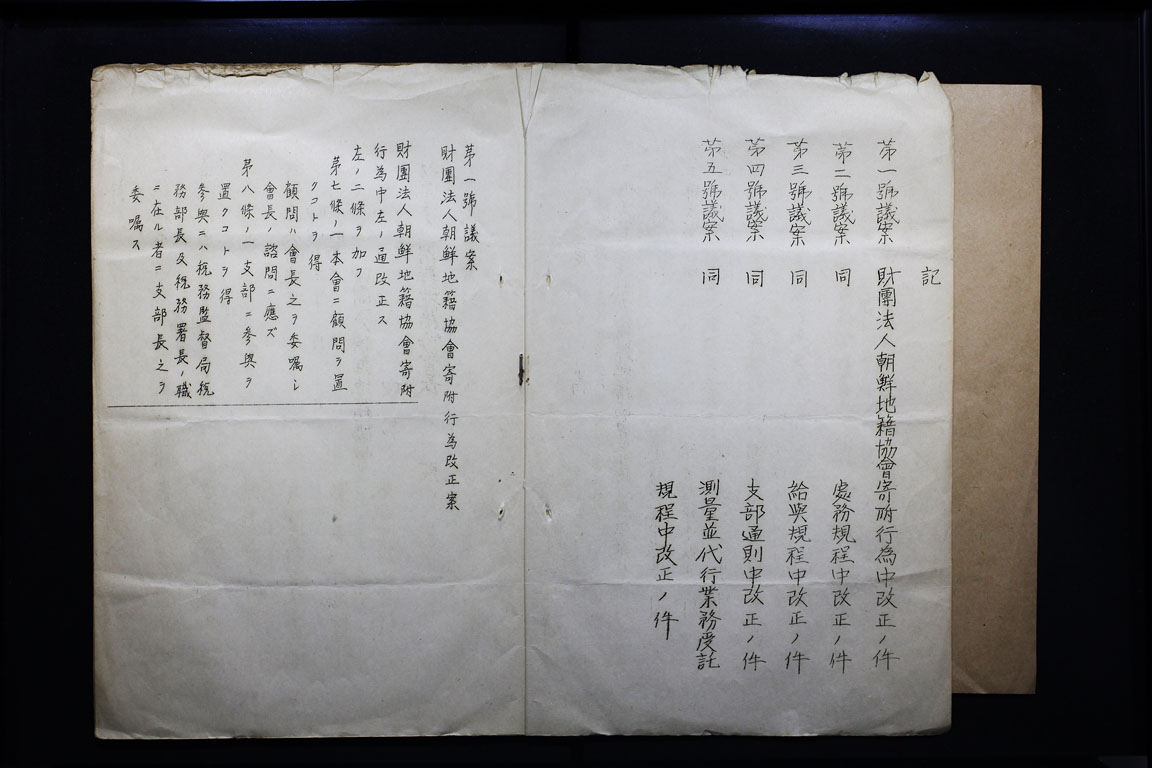 記
第一號議案 財團法人朝鮮地籍協會寄附行為中改正ノ件
第二號議案 同 處務規程中改正ノ件
第三號議案 同 給與規程中改正ノ件
第四號議案 同 支部通則中改正ノ件
第五號議案 同 測量並代行業務受託
規程中改正ノ件
第一號議案
財團法人朝鮮地籍協會寄附行為改正案
財團法人朝鮮地籍協會寄附
行為中左ノ通改正ス
左ノ二條ヲ加フ
第七條ノ一 本會ニ顧問ヲ置
クコトヲ得
顧問ハ會長之ヲ委嘱シ
會長ノ諮問ニ應ズ
第八條ノ一 支部ニ參與ヲ
置クコトヲ得
參與ニハ稅務監督局稅
務部長及稅務署長ノ職
ニ在ル者ニ支部長之ヲ
委嘱ス